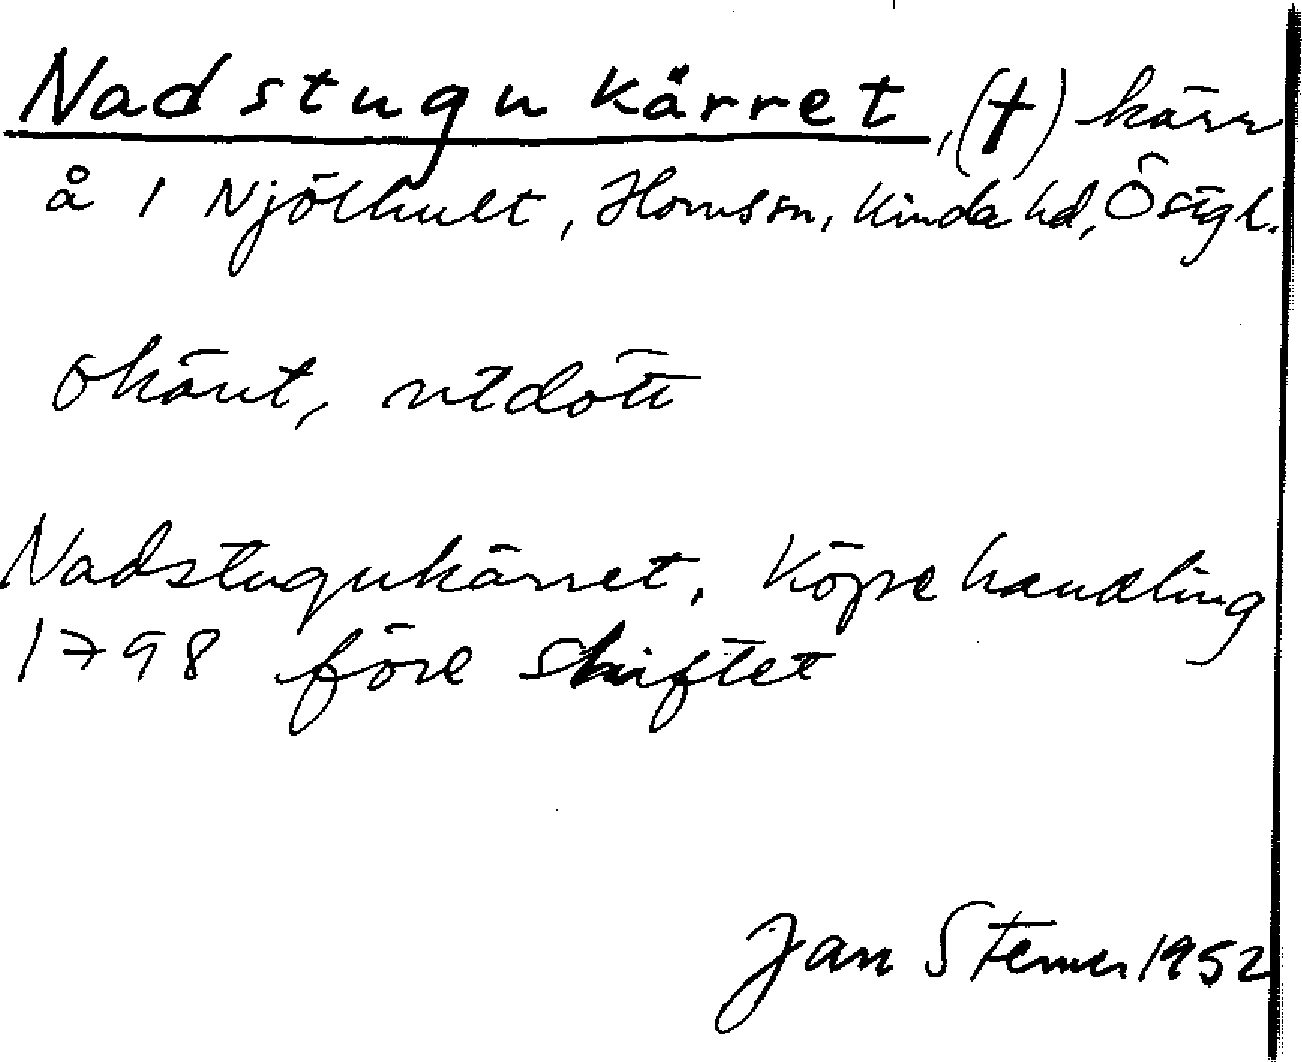 Nadstugukärret, (†) kärr
å 1 Njölhult, Horns sn, Kinda hd, Östgl.
okänt, utdött
Nadstugukärret, Köpehandling
1798 före skiftet
Jan 1952